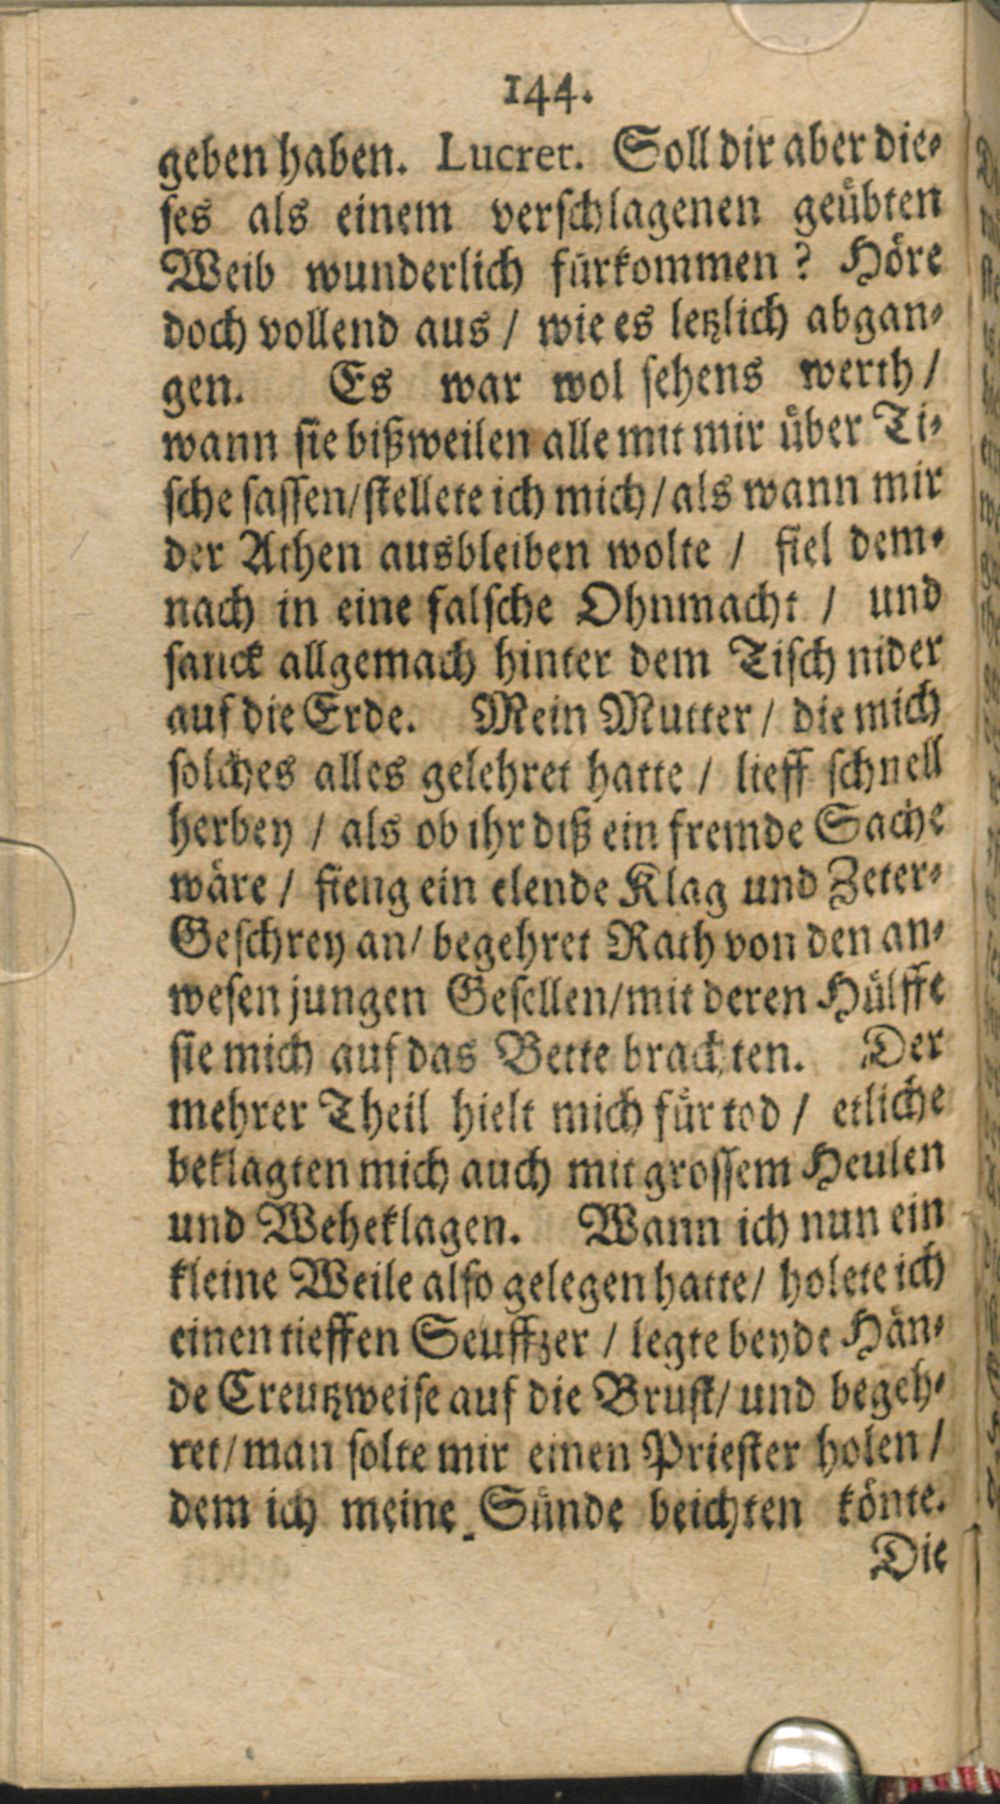 144.
geben haben. Lucret. Soll dir aber die-
ses als einem verschlagenen geübten
Weib wunderlich fürkommen? Höre
doch vollend aus / wie es letzlich abgan-
gen. Es war wol sehens werth /
wann sie bißweilen alle mit mir über Ti-
sche sassen / stellete ich mich / als wann mir
der Athen ausbleiben wolte / fiel dem-
nach in eine falsche Ohnmacht / und
sanck allgemach hinter dem Tisch nider
auf die Erde. Mein Mutter / die mich
solches alles gelehret hatte / lieff schnell
herbey / als ob ihr diß ein fremde Sache
wäre / fieng ein elende Klag und Zeter-
Geschrey an / begehret Rath von den an-
wesen jungen Gesellen / mit deren Hülffe
sie mich auf das Bette brachten. Der
mehrer Theil hielt mich für tod / etliche
beklagten mich auch mit grossem Heulen
und Weheklagen. Wann ich nun ein
kleine Weile also gelegen hatte / holete ich
einen tieffen Seuffzer / legte beyde Hän-
de Creutzweise auf die Brust / und begeh-
ret / man solte mir einen Priester holen /
dem ich meine Sünde beichten könte.
Die